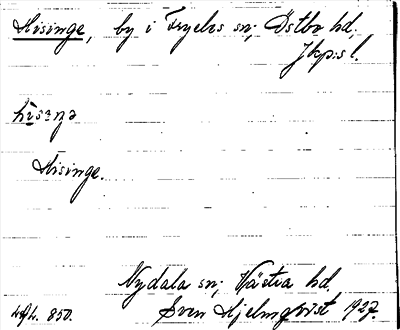 Hisinge, by i Fryeles sn; Östbo hd,
Jkpgs l.
Hisinge.
Nydala sn; Västra hd.
Sven Hjelmqvist 1927.
850.